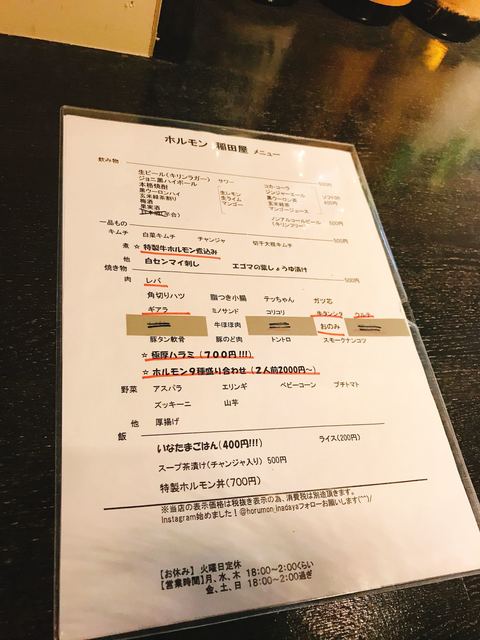 ホルモン 稲田屋 メニュー
飲み物
生ビール(キリンラガー) サワー 500円
ジョニ黒ハイボール
本格焼酎
黒ウーロンハイ
玄米緑茶割り
梅酒
果実酒
生レモン
生ライム
マンゴー
コカ・コーラ
ジンジャーエール
黒ウーロン茶
玄米緑茶
マンゴージュース
ノンアルコールビール
(キリンフリー) 500円
一品もの
キムチ 白菜キムチ チャンジャ 切干大根キムチ 500円
煮 ☆特製牛ホルモン煮込み
他 白センマイ刺し エゴマの葉しょうゆ漬け
焼き物 500円
肉 レバ
角切りハツ 脂つき小腸 テッちゃん ガツ芯
ギアラ ミノサンド コリコリ 牛タンシタ ウルテ
牛ほほ肉 おのみ
豚タン軟骨 豚のど肉 トントロ スモークナンコツ
☆ 極厚ハラミ(700円!!!)
☆ ホルモン9種盛り合わせ(2人前2000円~)
野菜 アスパラ エリンギ ベビーコーン プチトマト
ズッキーニ 山芋
他 厚揚げ
飯
いなたまごはん(400円!!!) ライス(200円)
スープ茶漬け(チャンジャ入り) 500円
特製ホルモン丼(700円)
※当店の表示価格は税抜き表示の為、消費税は別途頂きます。
Instagram始めました!@horumon_inadayaフォローお願いします(^^)/
【お休み】 火曜日定休
【営業時間】月、水、木 18:00~2:00くらい
金、土、日 18:00~2:00過ぎ